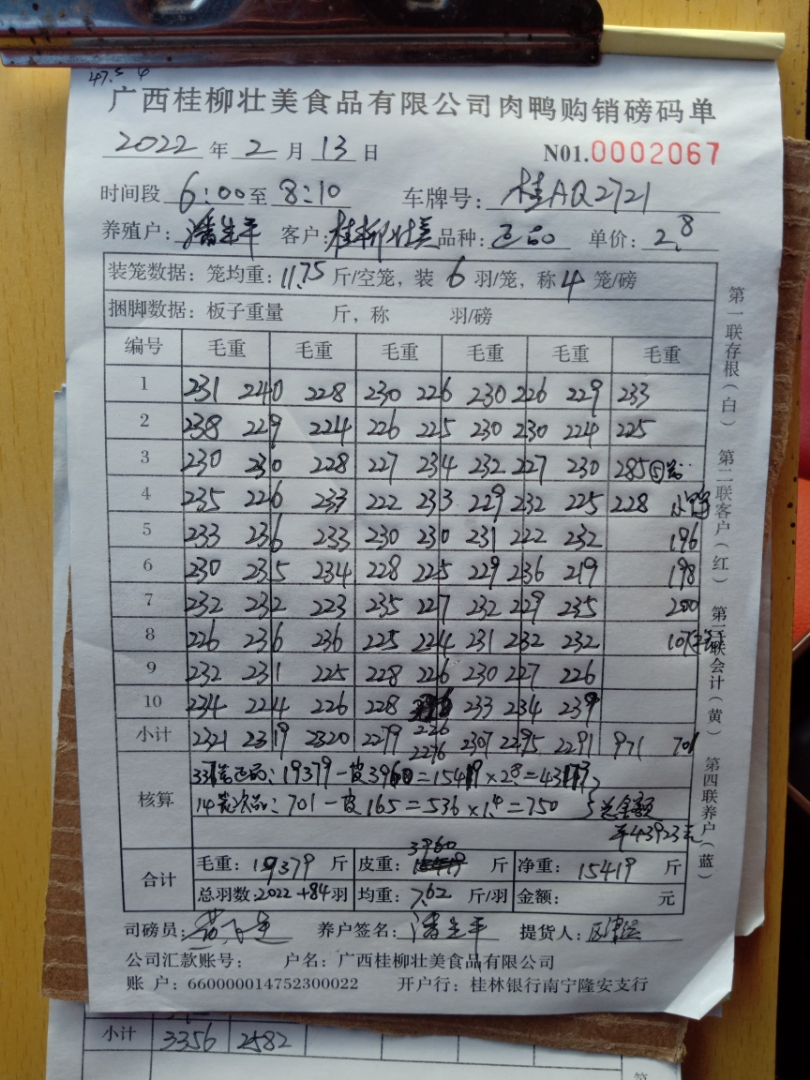 47.5 4
广西桂柳壮美食品有限公司肉鸭购销磅码单
2022 年 2 月 13 日 N01.0002067
时间段 6:00 至 8:10 车牌号: 桂AQ2721
养殖户: 潘生平 客户: 桂柳壮美 品种: 正品 单价: 2.8
装笼数据: 笼均重: 11.75 斤/空笼, 装 6 羽/笼, 称 4 笼/磅
捆脚数据: 板子重量 斤, 称 羽/磅
编号 毛重 毛重 毛重 毛重 毛重 毛重
1 231 240 228 230 226 230 226 229 233
2 238 229 224 226 225 230 230 224 225
3 230 230 228 227 234 232 227 230 285 ⑤笼
4 235 226 233 222 233 229 232 225 228 小鸭
5 233 236 233 230 230 231 222 232 196
6 230 235 234 228 225 229 236 219 198
7 232 232 223 235 227 232 229 235 200
8 226 236 236 225 224 231 232 232 107
9 232 231 225 228 226 230 227 226
10 234 224 226 228 226 233 234 239
小计 2321 2319 2320 2279 2276 2307 2295 2291 971 701
核算
337笼正品: 19379-皮3960=15419×2.8=43173
14笼次品: 701-皮165=536×1.4=750 总金额
￥43923元
合计 毛重: 19379 斤 皮重: 3960 斤 净重: 15419 斤
总羽数: 2022+84 羽 均重: 7.62 斤/羽 金额: 元
司磅员: 养户签名: 潘生平 提货人:
公司汇款账号: 户名: 广西桂柳壮美食品有限公司
账 户: 660000014752300022 开户行: 桂林银行南宁隆安支行
第一联存根(白) 第二联客户(红) 第三联会计(黄) 第四联养户(蓝)
小计 3356 2582